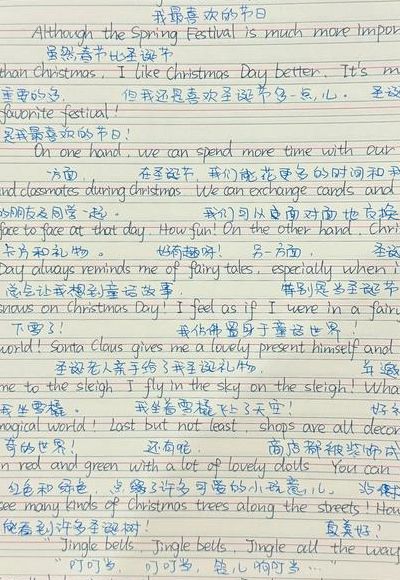 我最喜欢的节日
Although the Spring Festival is much more impor
虽然春节比圣诞节
than Christmas, I like Christmas Day better. It's m
重要的多, 但我还是喜欢圣诞节多一点儿。 圣诞
favorite festival!
是我最喜欢的节日!
On one hand, we can spend more time with our
一方面, 在圣诞节, 我们能花更多的时间和我
and classmates during Christmas. We can exchange cards and
的朋友及同学一起。 我们可以面对面地交换
face to face at that day. How fun! On the other hand, Chri
卡片和礼物。 好有趣呀! 另一方面, 圣诞
Day always reminds me of fairy tales, especially when i
总会让我想到童话故事 特别是当圣诞节
snows on Christmas Day! I feel as if I were in a fairy
下雪了! 我仿佛置身于童话世界!
world! Santa Claus gives me a lovely present himself and
圣诞老人亲手给了我圣诞礼物,
me to the sleigh I fly in the sky on the sleigh! Wha
我坐雪橇。 我坐着雪橇飞上了天空! 好
magical world! Last but not least, shops are all decor
奇的世界! 还有呢, 商店都被装饰成
in red and green with a lot of lovely dolls You can
红色和绿色 点缀了许多可爱的小玩意儿。
see many kinds of Christmas trees along the streets! How
能看到许多圣诞树! 真美好!
"Jingle bells, Jingle bells, Jingle all the way
"叮叮当, 叮叮当, 铃儿响叮当…"